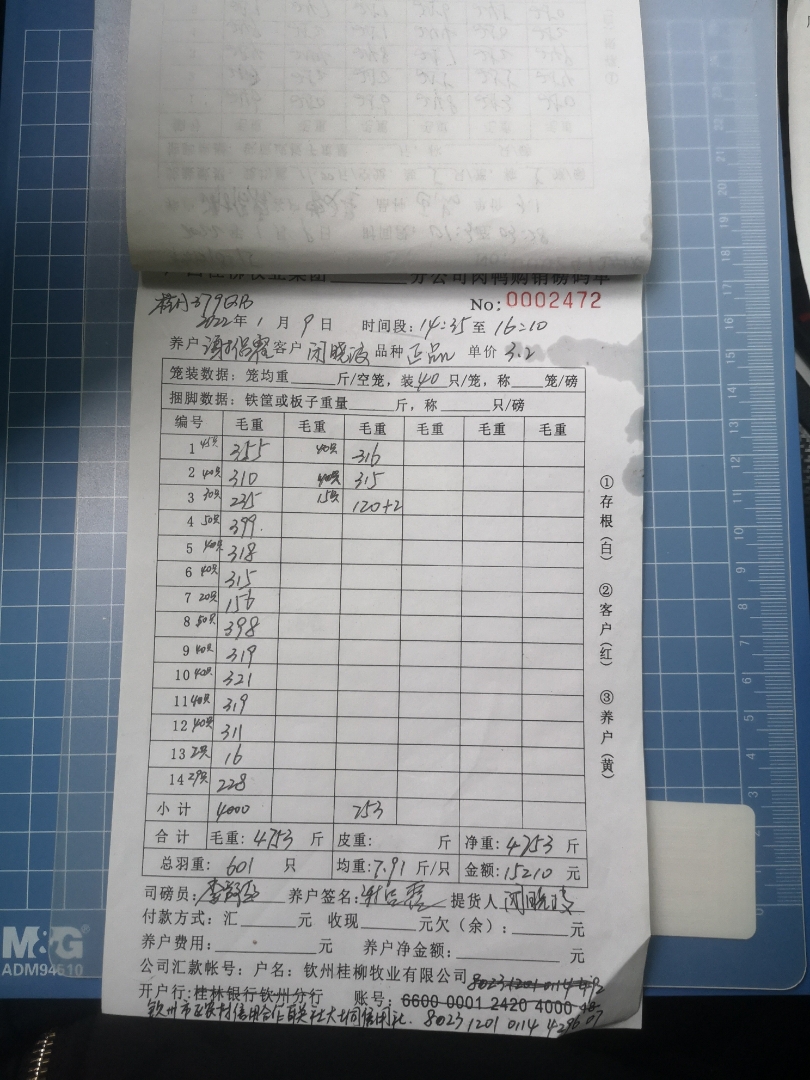 分公司肉鸭购销磅码单
No: 0002472
2022年1月9日 时间段: 14:35至16:10
养户 客户 闭晓波 品种 正品 单价 3.2
笼装数据: 笼均重 斤/空笼, 装40只/笼, 称 笼/磅
捆脚数据: 铁筐或板子重量 斤, 称 只/磅
编号 毛重 毛重 毛重 毛重 毛重 毛重
1 45只 355 40只 316
2 40只 310 40只 315
3 30只 235 15只 120+2
4 50只 399
5 40只 318
6 40只 315
7 20只 156
8 50只 398
9 40只 319
10 40只 321
11 40只 319
12 40只 311
13 2只 16
14 29只 228
小计 4000 753
合计 毛重: 4753 斤 皮重: 斤 净重: 4753 斤
总羽重: 601 只 均重: 7.91 斤/只 金额: 15210 元
司磅员: 养户签名: 提货人 闭晓波
付款方式: 汇 元 收现 元欠(余): 元
养户费用: 元 养户净金额: 元
公司汇款帐号: 户名: 钦州桂柳牧业有限公司
开户行: 桂林银行钦州分行 账号: 6600 0001 2420 4000
钦州市区农村信用合作联社大垌信用社. 8023 1201 0114 4296 07
①存根(白) ②客户(红) ③养户(黄)
M&G
ADM94610